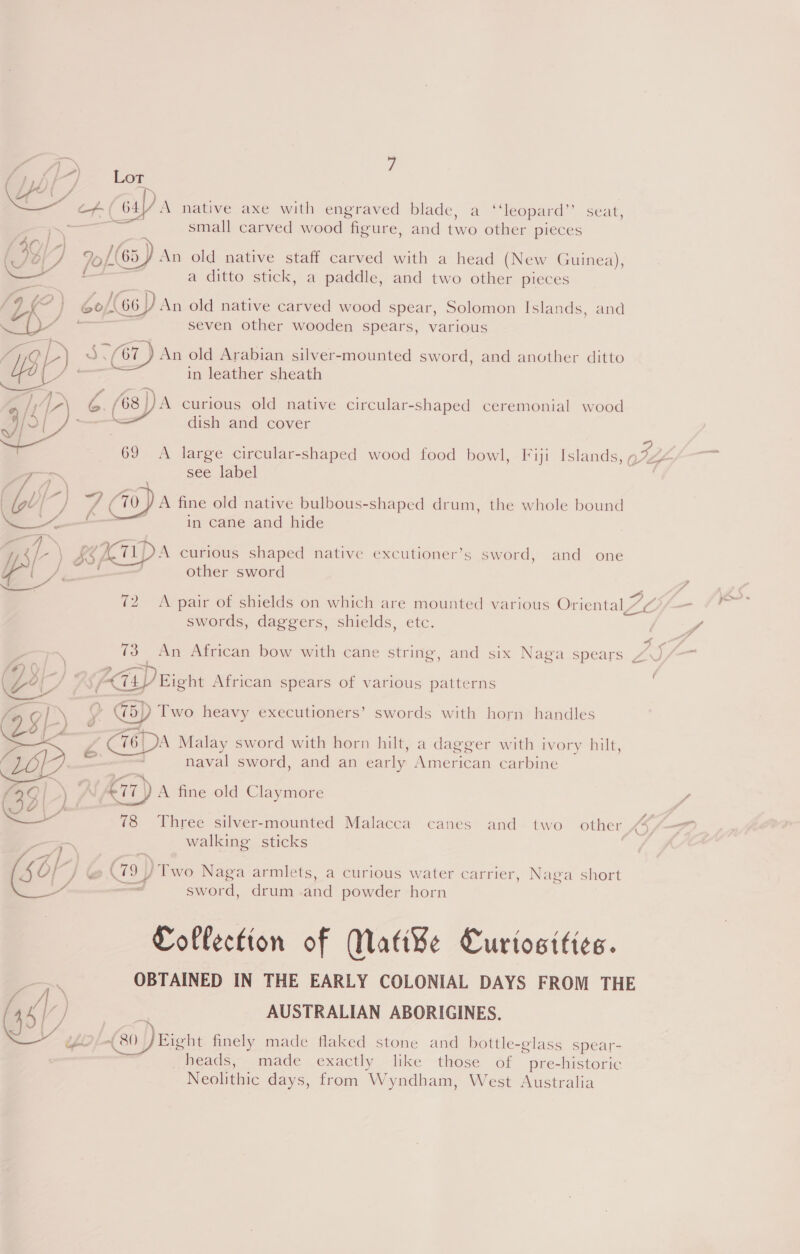 7
Lot
64 A native axe with engraved blade, a “leopard” seat,
small carved wood figure, and two other pieces
65 An old native staff carved with a head (New Guinea),
a ditto stick, a paddle, and two other pieces
66 An old native carved wood spear, Solomon Islands, and
seven other wooden spears, various
67 An old Arabian silver-mounted sword, and another ditto
in leather sheath
68 A curious old native circular-shaped ceremonial wood
dish and cover
69 A large circular-shaped wood food bowl, Fiji Islands,
see label
70 A fine old native bulbous-shaped drum, the whole bound
in cane and hide
71 A curious shaped native excutioner’s sword, and one
other sword
72 A pair of shields on which are mounted various Oriental
swords, daggers, shields, etc.
73 An African bow with cane string, and six Naga spears
74 Eight African spears of various patterns
75 Two heavy executioners’ swords with horn handles
76 A Malay sword with horn hilt, a dagger with ivory hilt,
naval sword, and an early American carbine
77 A fine old Claymore
78 Three silver-mounted Malacca canes and two other
walking sticks
79 Two Naga armlets, a curious water carrier, Naga short
sword, drum and powder horn
Collection of Native Curiosities.
OBTAINED IN THE EARLY COLONIAL DAYS FROM THE
AUSTRALIAN ABORIGINES.
80 Eight finely made flaked stone and bottle-glass spear-
heads, made exactly like those of pre-historic
Neolithic days, from Wyndham, West Australia